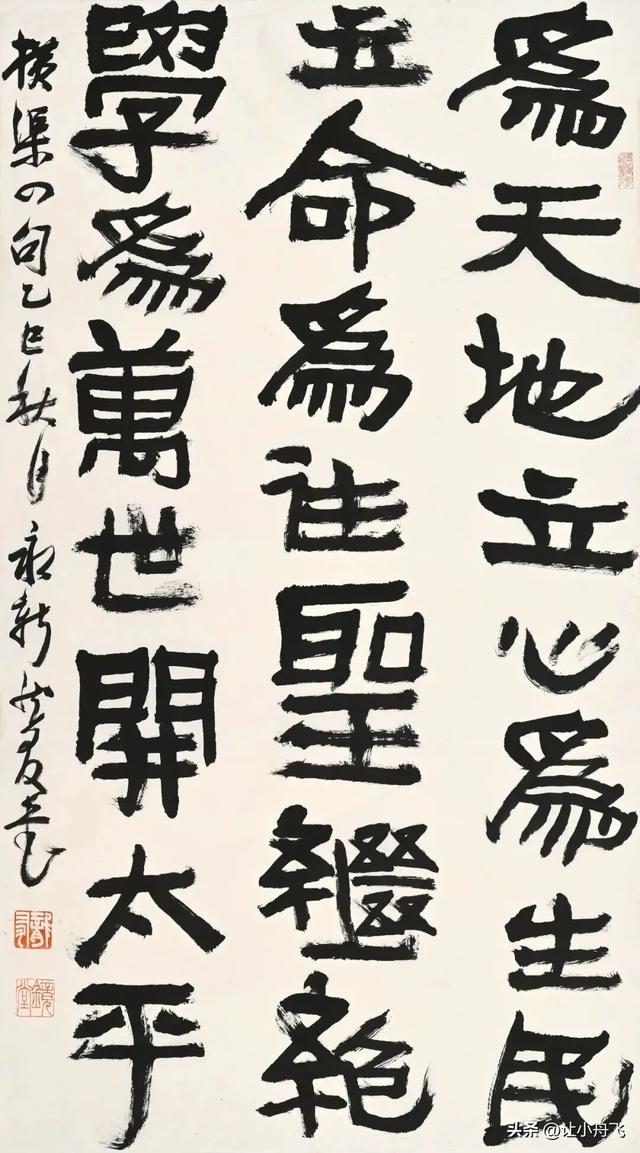 爲天地立心爲生民
立命爲往聖繼絕
學爲萬世開太平
橫渠四句乙巳秋月永新
头条 @让小舟飞